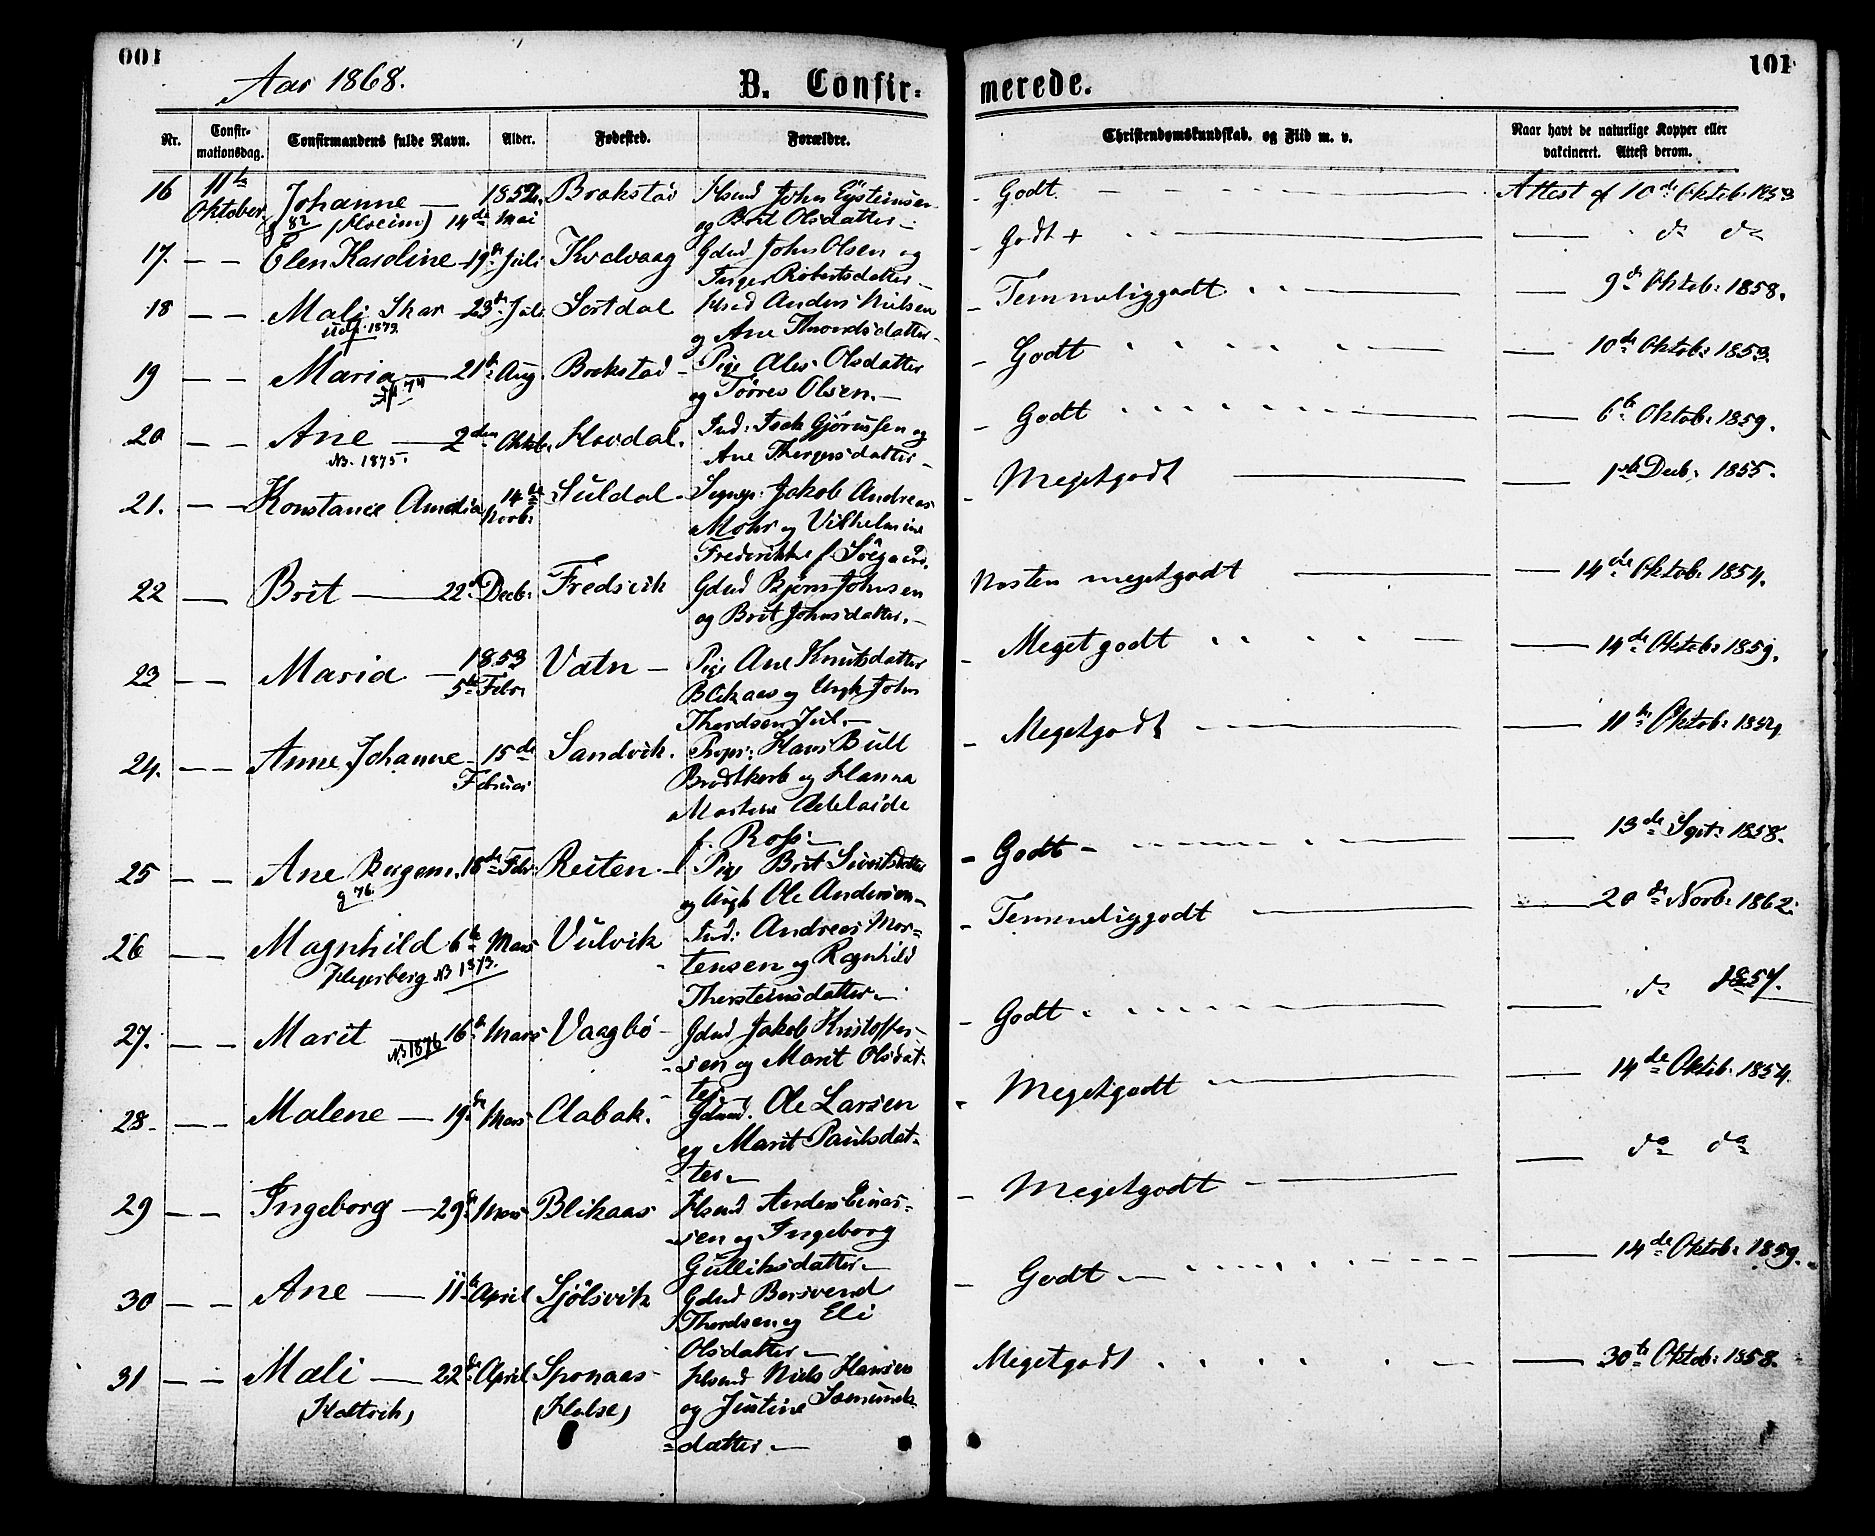 001
101
Aar 1868.
B. Confir-
merede.
Nr.
Confir-
mationsdag.
Confirmandens fulde Navn.
Alder.
Fødested.
Forældre.
Christendomskundskab. og Flid m. v.
Naar havt de naturlige Kopper eller
vakcineret. Attest derom.
16 11te Johanne — 1852. Brokstad Husmd John Eysteinsen
Oktober 14de Mai og Brit Olsdatter —
- Godt. Attest af 10de Oktob. 1853
17. — — Elen Karoline 19de Juli Kvalvaag Gdmd John Olsen og
Inger Robertsdatter —
- Godt + do do
18 — — Mali Skar 23de Juli Sortdal Husmd Anders Nielsen
1873. og Ane Throndsdatter —
- Temmeliggodt 9de Oktob: 1858.
19 — — Maria — 21de Aug. Brokstad — Pige Ales Olsdatter
74 og Tørres Olsen. —
- Godt 10de Oktob: 1853
20 — — Ane — 2den Oktob. Hovdal. Ind: Isak Gjørussen og
N. 1875. Ane Thorgersdatter —
- Godt 6te Oktob: 1859.
21. — — Konstance Amalia 14de Suldal Jakob Andreas
Novb: Mohr og Vilhelmine
Frederikke f. Søegaard.
- Megetgodt 1ste Decb: 1855.
22 — Brit — 22de Decb: Fredsvik Gdmd Bjørn Johnsen
og Brit Johnsdatter. —
Næsten megetgodt 14de Oktob: 1854.
23 — — Maria — 1853 Vatn — Pige Ane Knutsdatter
5te Febr Blikaas og Ungk John
Thordsen Jul. —
- Megetgodt 14de Oktob: 1859.
24. — — Anne Johanne 15de Sandvik. Propr: Hans Bull
Februar Brodtkorb og Hanna
Martine Adelaide
f. Ross —
- Megetgodt 11te Oktob: 1854
25 — — Ane Bergem. 18de Febr Reiten — Pige Brit Sivertsdatter
g 76 og Ungk Ole Andersen —
- Godt — 13de Sept: 1858.
26 — — Magnhild 6te Mars Vulvik Ind: Andreas Mor=
N 1873. tensen og Ragnhild
Thorsteinsdatter —
- Temmeliggodt 20de Novb: 1862.
27. — — Marit 16de Mars Vaagbø Gdmd Jakob Kristoffer=
N 1876 sen og Marit Olsdat-
ter —
- Godt do 1857.
28 — — Malene — 19de Mars Aabak. Gdmd. Ole Larsen
og Marit Paulsdat-
ter —
- Megetgodt 14de Oktob. 1854.
29 — — Ingeborg — 29de Mars Blikaas Husmd Anders Einar=
sen og Ingeborg
Gulliksdatter —
- Megetgodt do do
30 — — Ane — 11te April Sjølsvik Gdmd Bersvend
Thordsen og Eli
Olsdatter —
- Godt — 14de Oktob: 1859.
31 — — Mali — 22de April Sponaas Husmd Niels Hansen
og Justine Samunds
datter —
Megetgodt 30te Oktob: 1858.